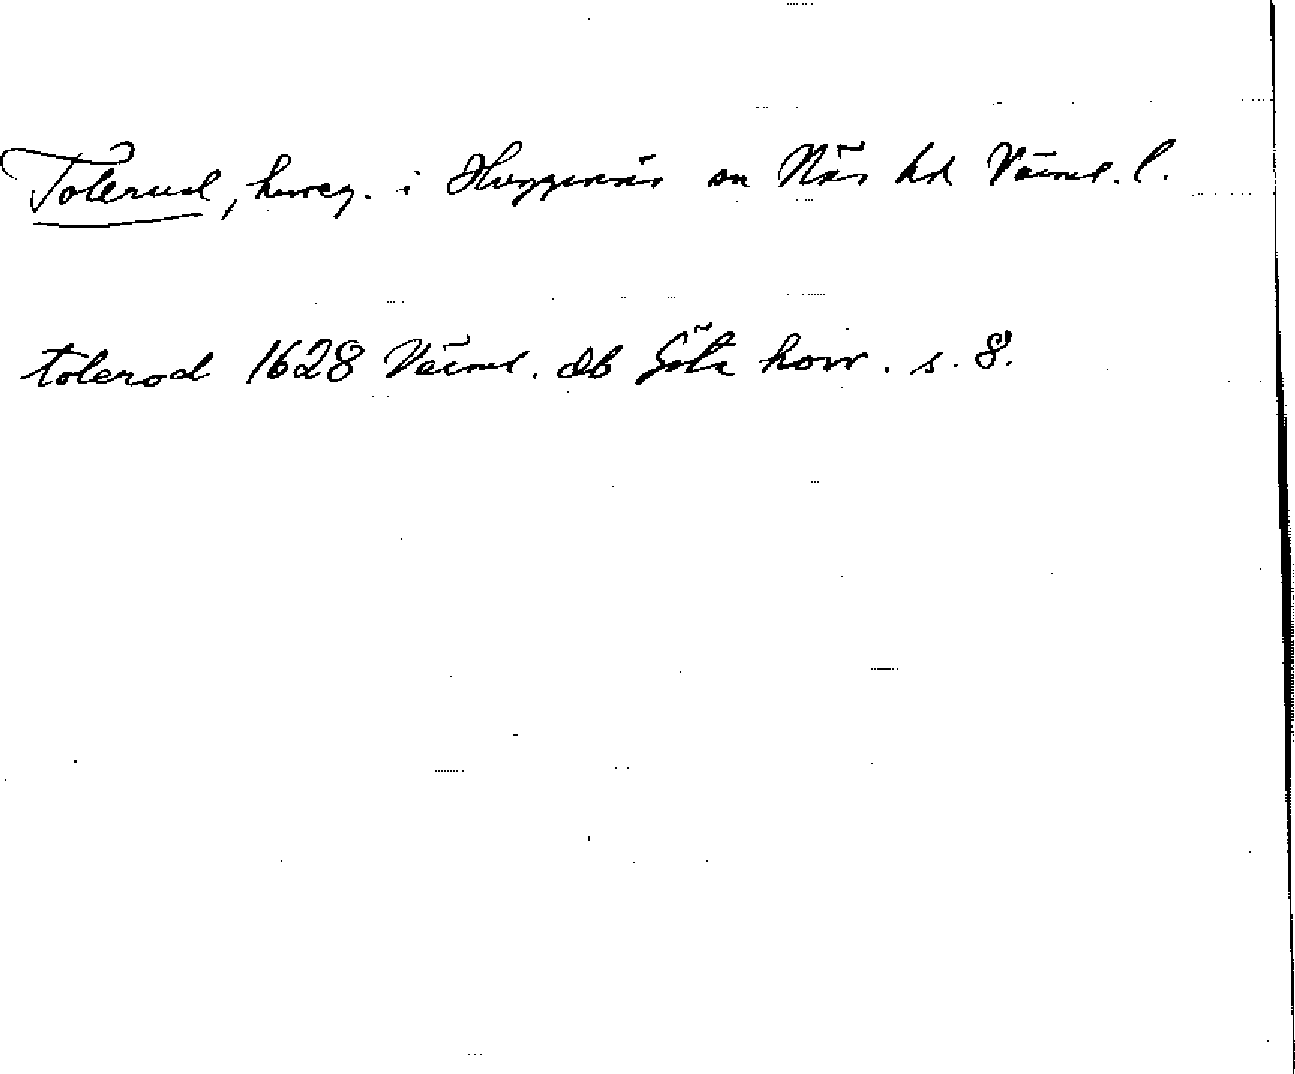 Tolerud, hmeg. i Huggenäs sn Näs hd Värml. l.
tolerod 1628 Värml. db Göta hovr. s. 8.